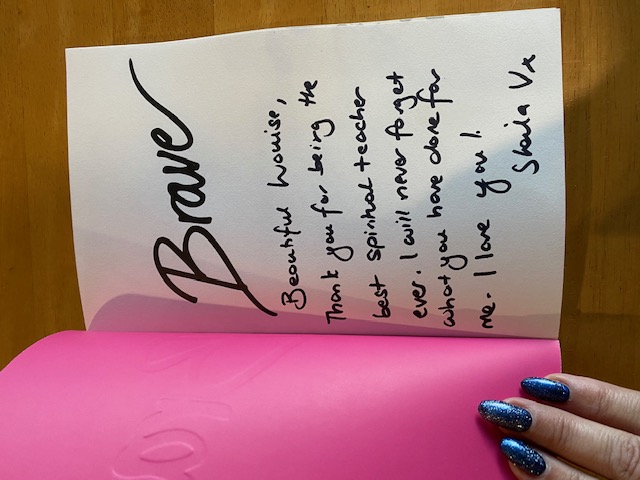 Brave
Beautiful Louise,
Thank you for being the
best spiritual teacher
ever. I will never forget
what you have done for
me. I love you!
Sheila Vx